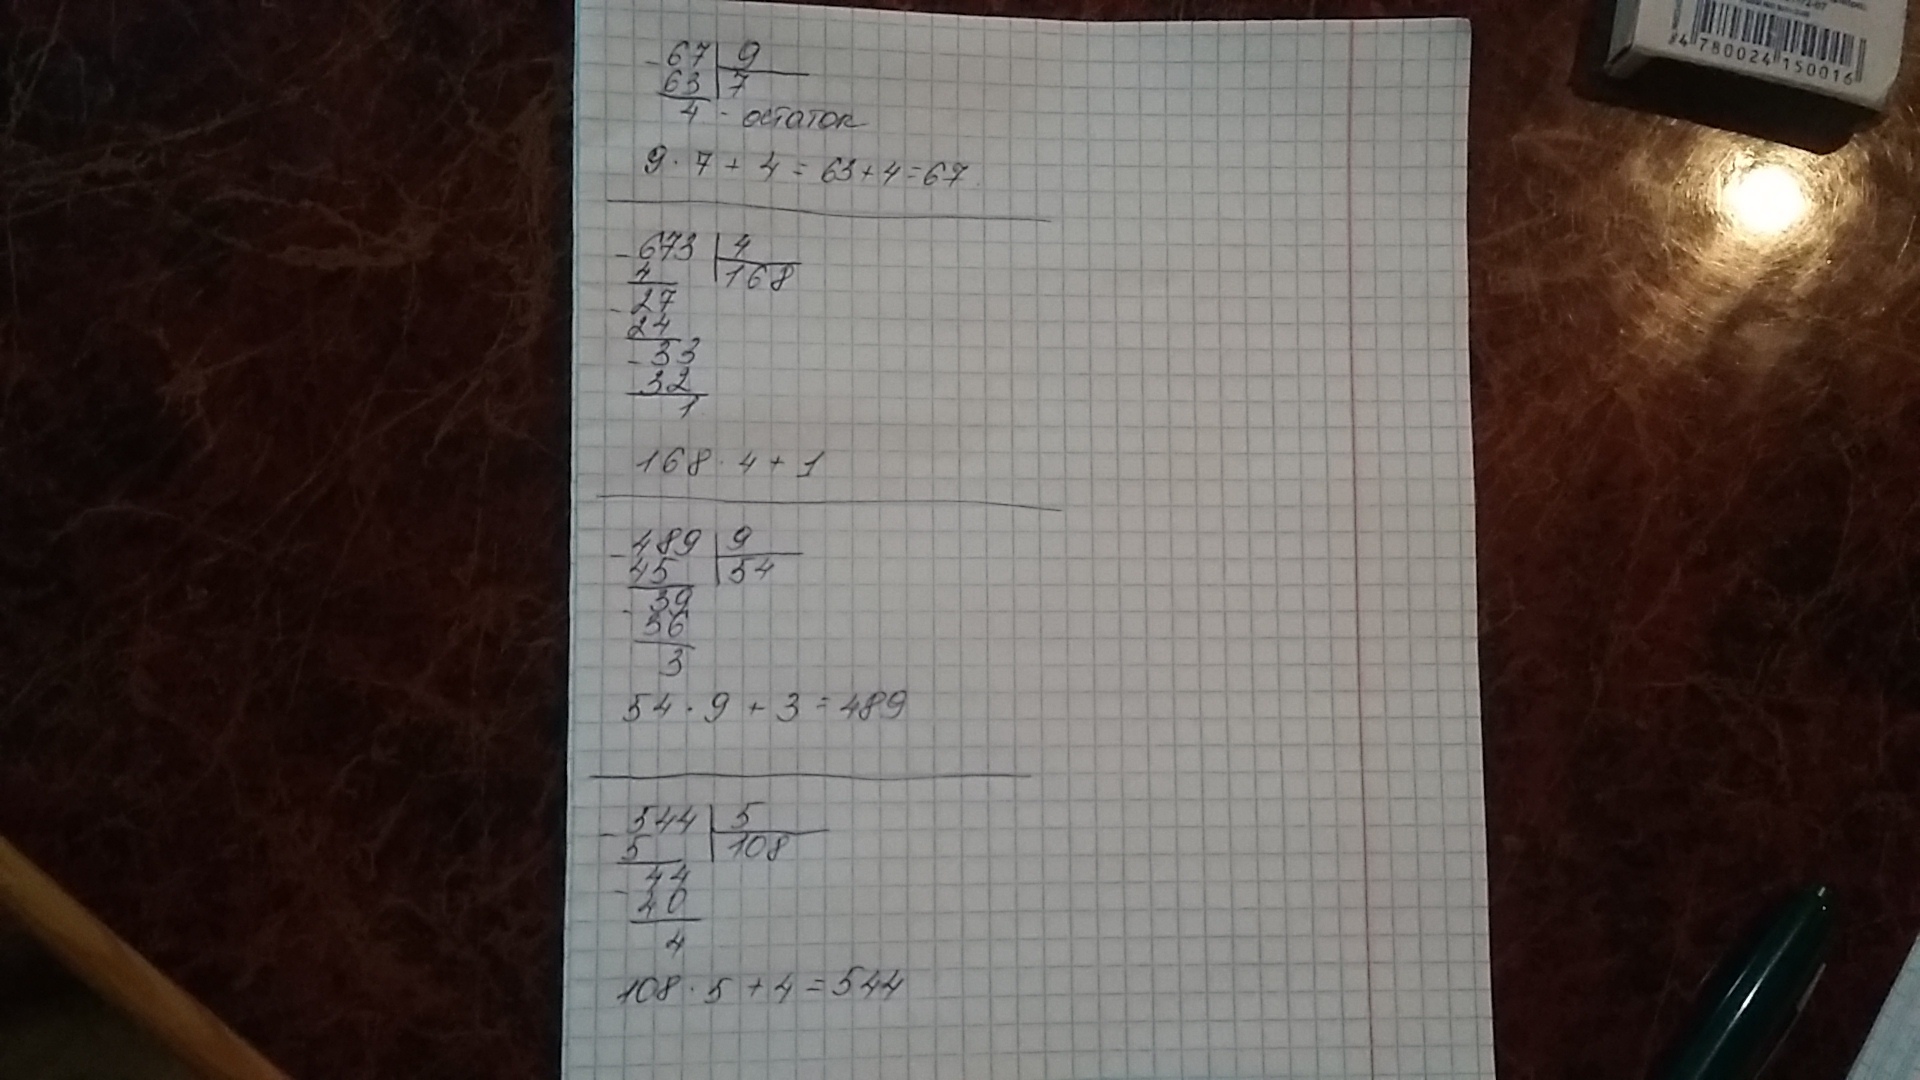 4 780024 150016
- 67 | 9
63 | 7
4 - остаток
9 · 7 + 4 = 63 + 4 = 67
- 673 | 4
4 | 168
- 27
24
- 33
32
1
168 · 4 + 1
- 489 | 9
45 | 54
- 39
36
3
54 · 9 + 3 = 489
- 544 | 5
5 | 108
- 44
40
4
108 · 5 + 4 = 544